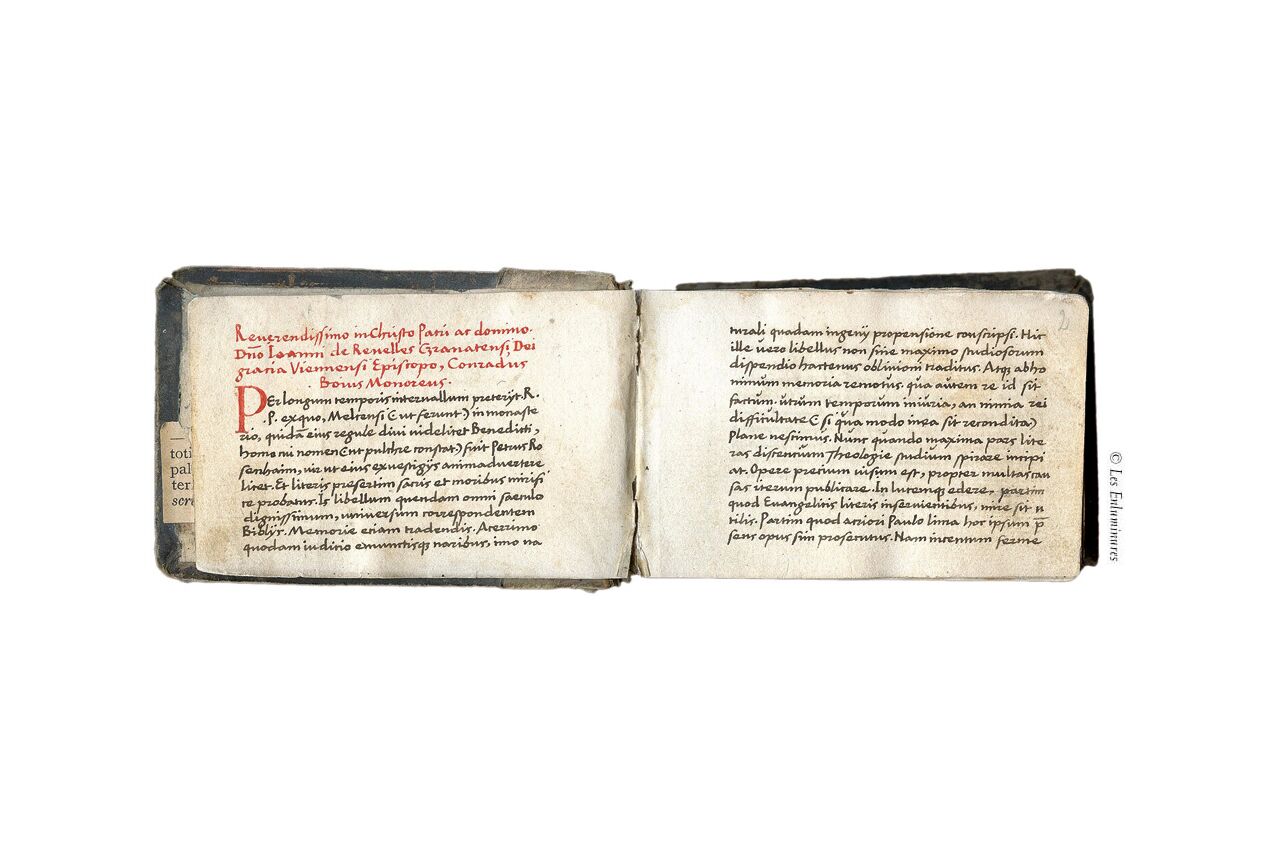 Reverendissimo in Christo Patri ac domino.
Dño Ioanni de Reuelles Granatensi, Dei
gracia Viennensi Episcopo, Conradus
Bouis Monoreus.
PEr longum temporis interuallum preterijt R.
P. ex quo, Meltensi (ut ferunt) in monaste
rio, quidã eius regule diui uidelicet Benedicti,
homo cui nomen (ut pulchre constat) fuit Petrus Ro
senhaim, uir ut eius ex uestigijs animaduertere
licet. Et literis presertim sacris et moribus mirifi
ce probatus. Is libellum quendam omni saeculo
dignissimum, uniuersum correspondentem
Biblijs. Memorie etiam tradendis. Acerrimo
quodam iudicio emunctisq naribus, imo na
toti
pal
ter
scre
2
turali quadam ingenij propensione conscripsi. Hic
ille uero libellus non sine maximo studiosorum
dispendio hactenus obliuioni traditus. Atq ab ho
minum memoria remotus. qua autem re id sit
factum. utrum temporum iniuria, an nimia rei
difficultate (si qua modo inea sit recondita)
Plane nescimus. Nunc quando maxima pars lite
ras discentium Theologie studium spirare incipi
at. Opere precium uisum est, propter multas cau
sas iterum publicare. In lucemq edere, partim
quod Euangelicis literis inseruientibus, mire sit u
tilis. Partim quod acriori Paulo lima hoc ipsum p̄
sens opus sim prosecutus. Nam inventum ferme
© Les Enluminures